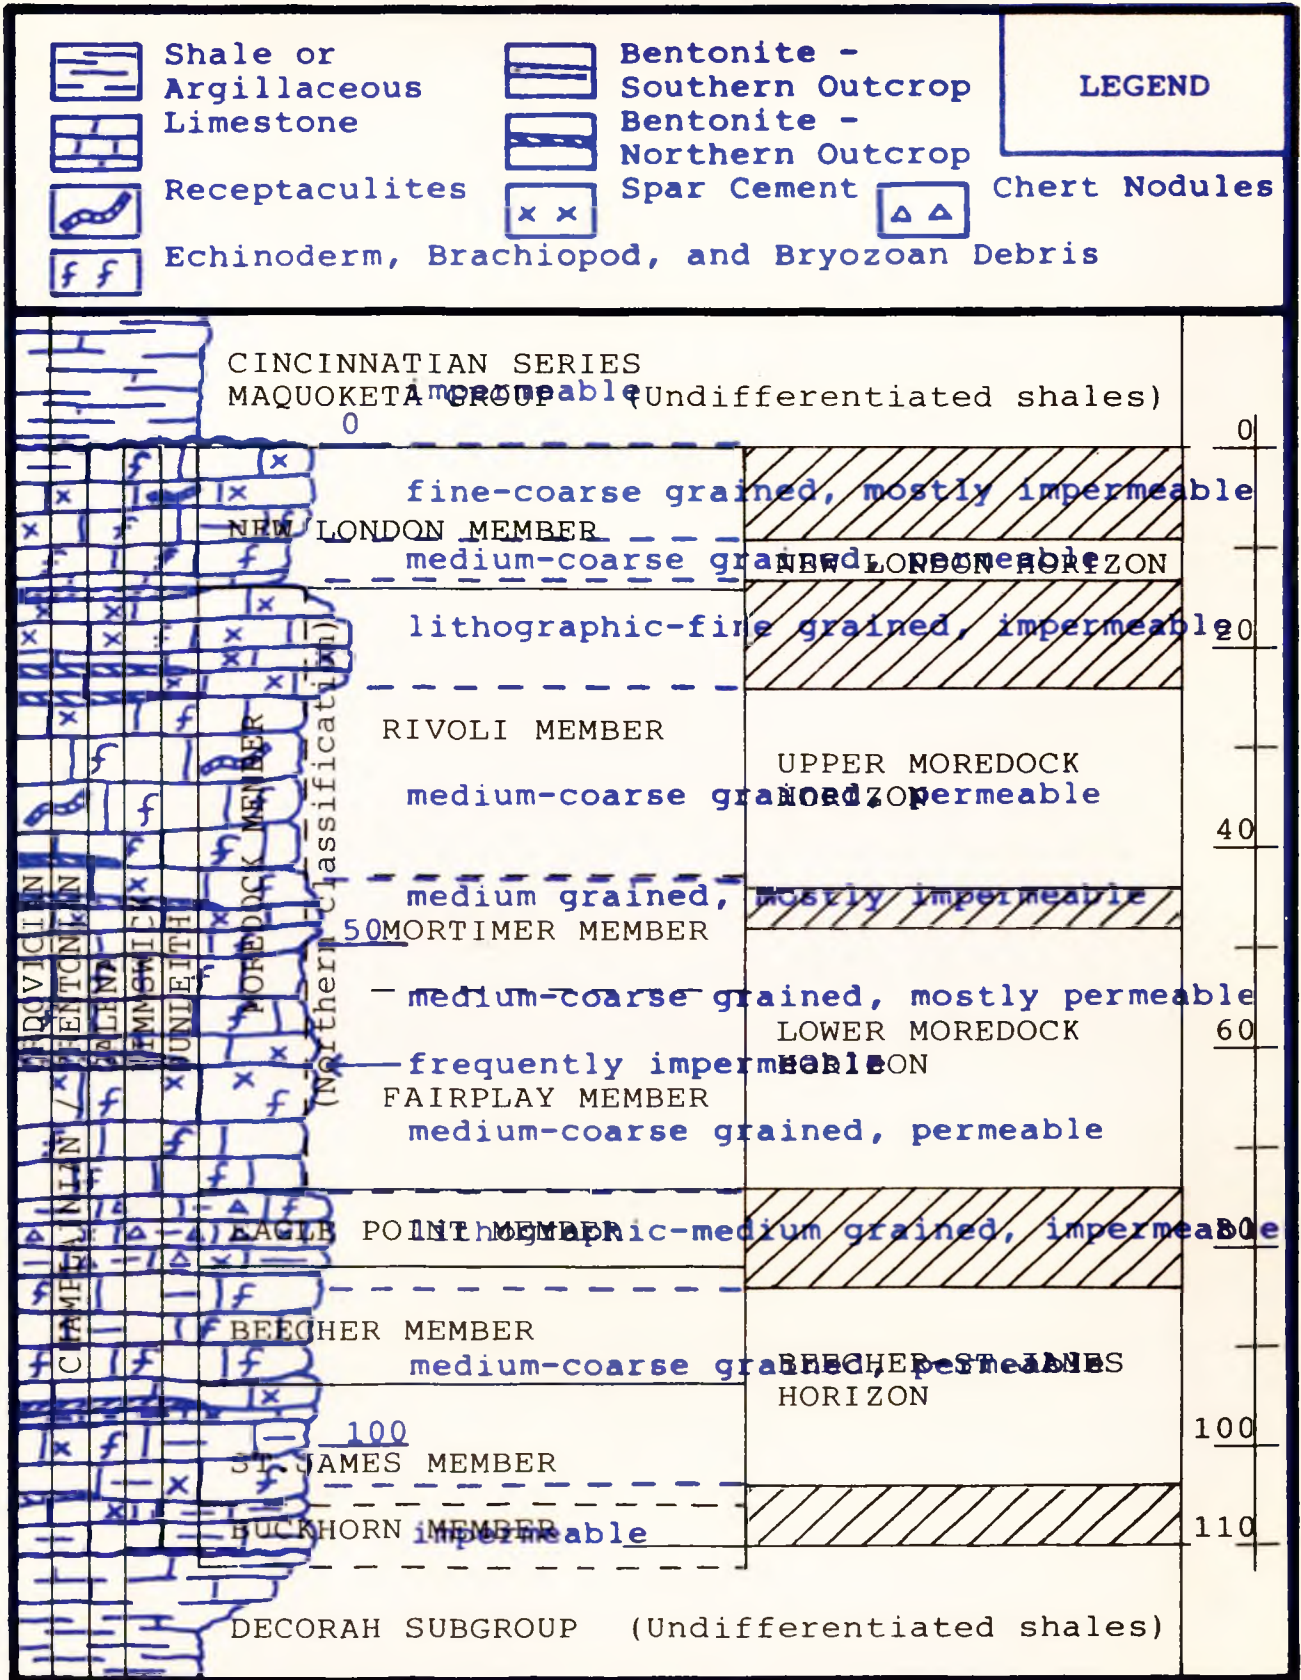 Shale or
Argillaceous
Limestone
Receptaculites
Echinoderm, Brachiopod, and Bryozoan Debris
Bentonite -
Southern Outcrop
Bentonite -
Northern Outcrop
Spar Cement
Chert Nodules
LEGEND
CINCINNATIAN SERIES
MAQUOKETA GROUP (Undifferentiated shales)
impermeable
0
0
fine-coarse grained, mostly impermeable
NEW LONDON MEMBER
medium-coarse grained, permeable
NEW LONDON HORIZON
lithographic-fine grained, impermeable
20
RIVOLI MEMBER
UPPER MOREDOCK
HORIZON
medium-coarse grained, permeable
40
medium grained, mostly impermeable
50
MORTIMER MEMBER
medium-coarse grained, mostly permeable
LOWER MOREDOCK
HORIZON
60
frequently impermeable
FAIRPLAY MEMBER
medium-coarse grained, permeable
EAGLE POINT MEMBER
lithographic-medium grained, impermeable
80
BEECHER MEMBER
medium-coarse grained, permeable
BEECHER-ST. JAMES
HORIZON
100
100
ST. JAMES MEMBER
BUCKHORN MEMBER
impermeable
110
DECORAH SUBGROUP (Undifferentiated shales)
ORDOVICIAN
CHAMPLAINIAN / TRENTONIAN
GALENA
KIMMSWICK
DUNLEITH
MOREDOCK MEMBER
(Northern Classification)